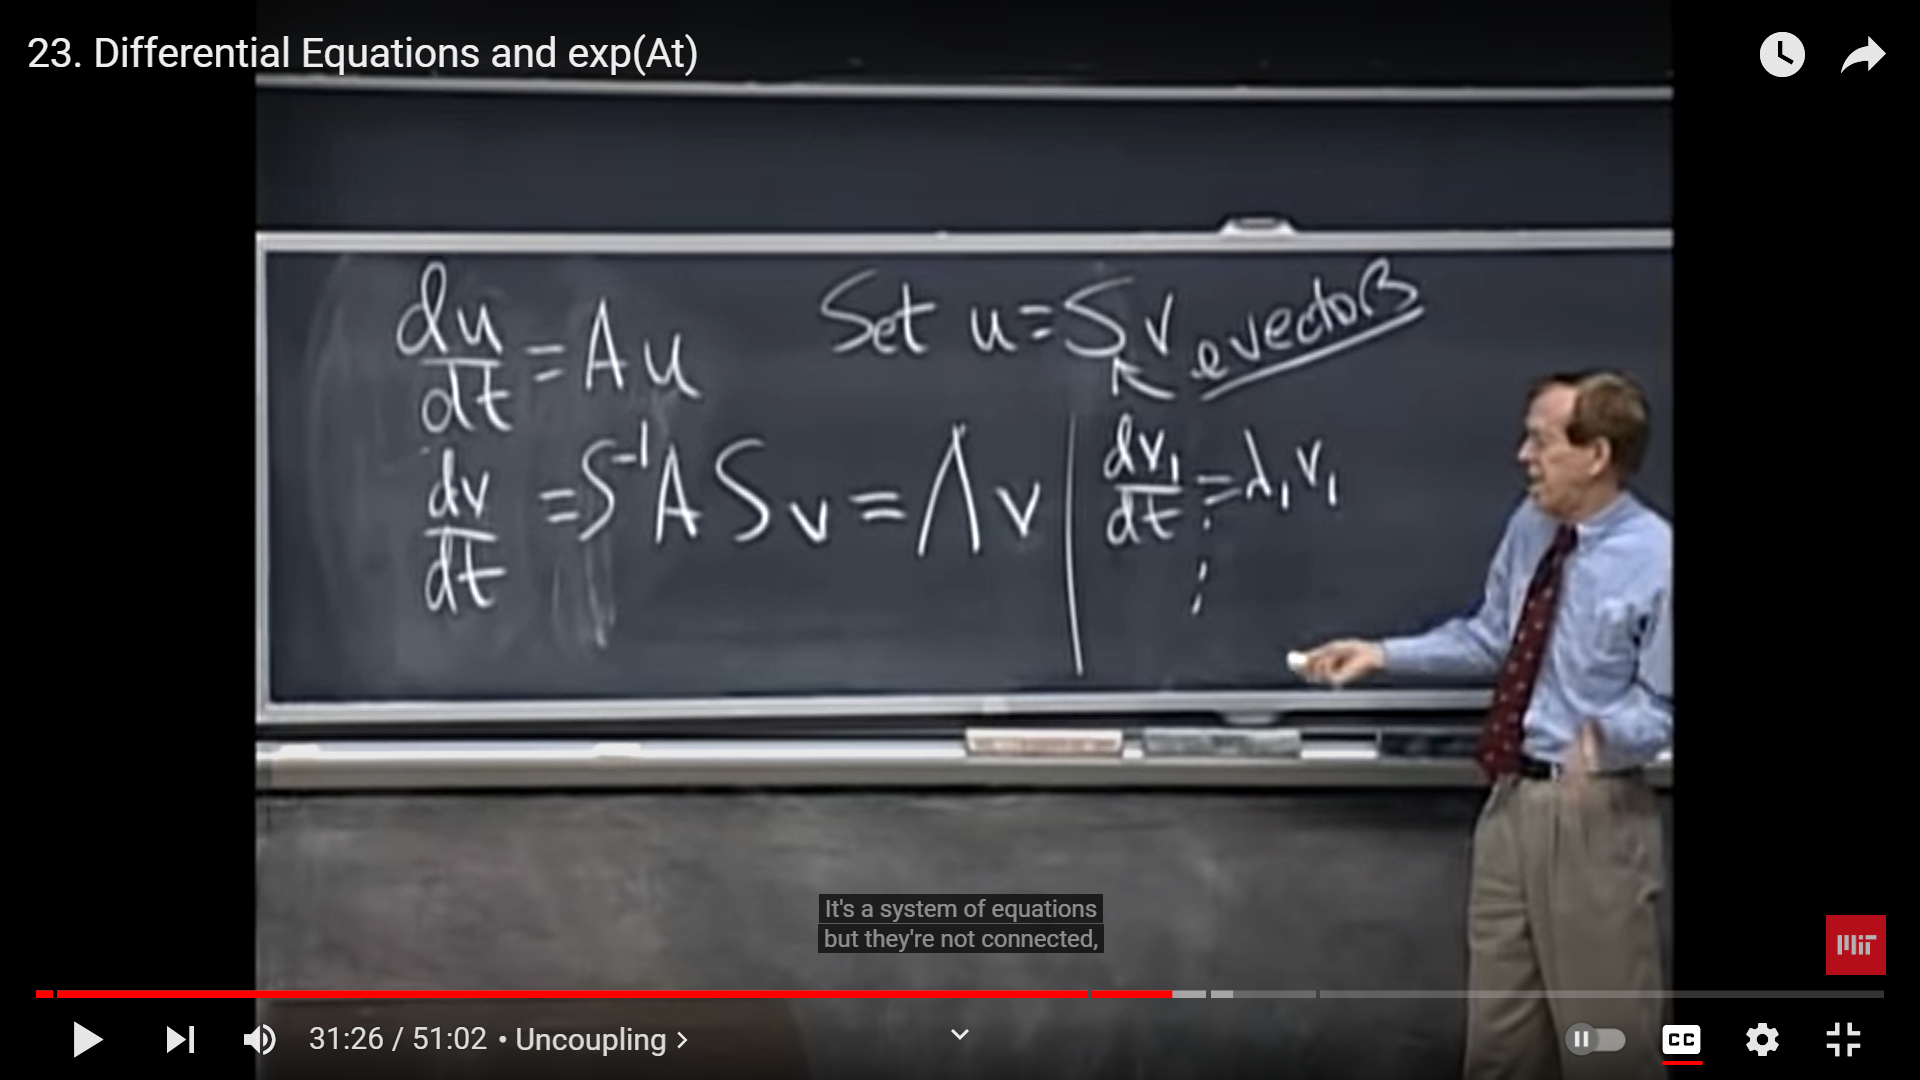 23. Differential Equations and exp(At)
du/dt = Au
Set u = Sv
evectors
dv/dt = S⁻¹ASv = Λv
dv₁/dt = λ₁v₁
⋮
It's a system of equations
but they're not connected,
MIT
31:26 / 51:02 • Uncoupling >
CC